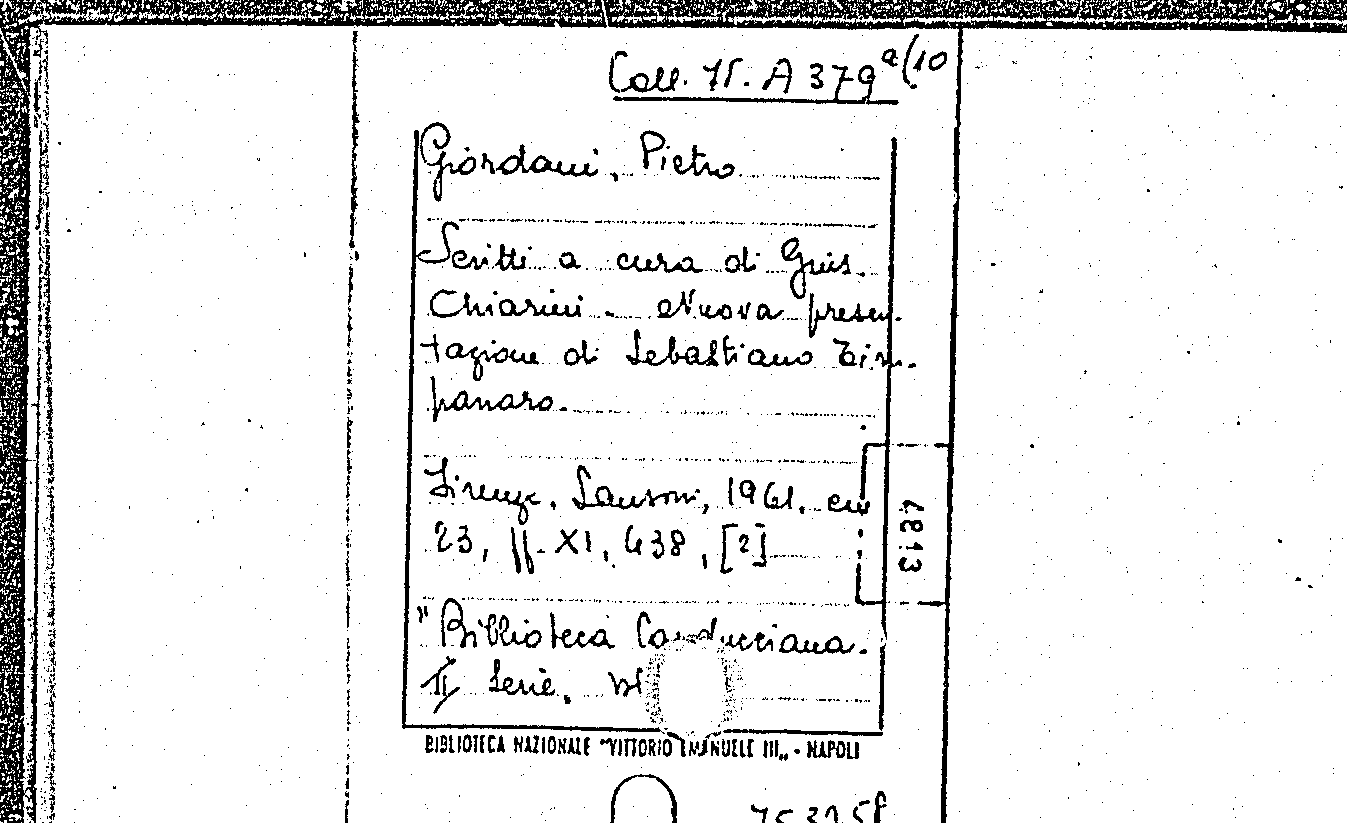 Coll. A 379 a(10
Giordani, Pietro
Scritti a cura di Gius.
Chiarini - Nuova presen-
tazione di Sebastiano Tim-
panaro.
Firenze, Sansoni, 1961, cm
23, pp. XI, 438, [2]
"Biblioteca Carducciana.
II Serie,
BIBLIOTECA NAZIONALE "VITTORIO EMANUELE III„ - NAPOLI
4813